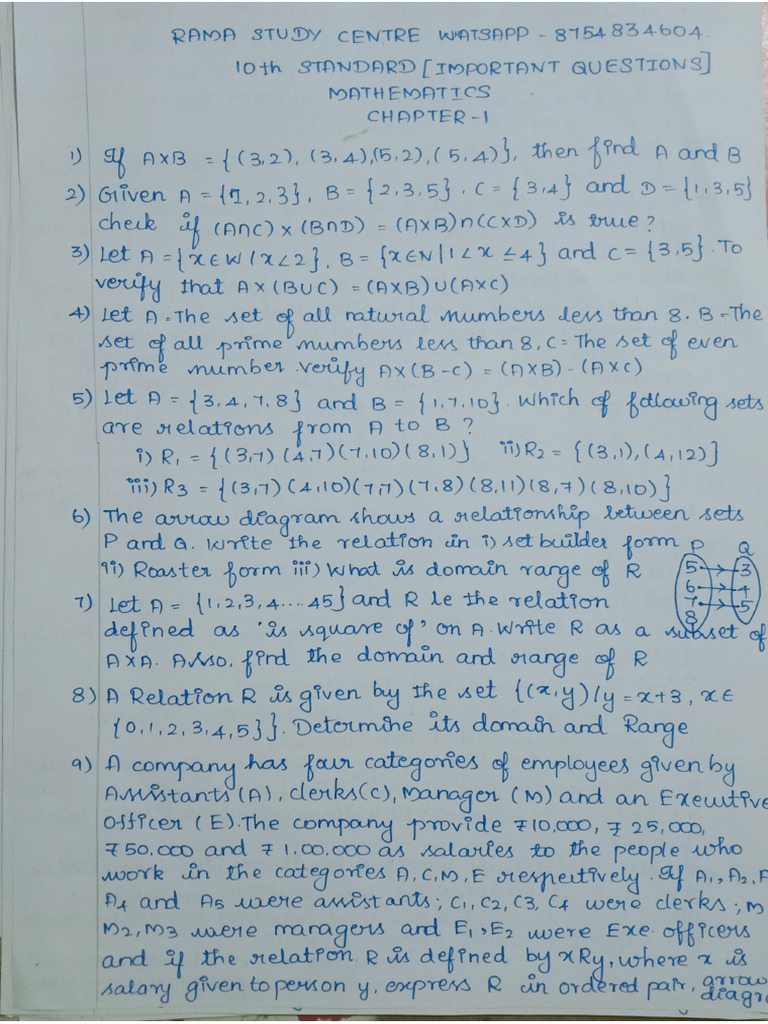 RAMA STUDY CENTRE WATSAPP - 8754834604.
10th STANDARD [IMPORTANT QUESTIONS]
MATHEMATICS
CHAPTER-1
1) If A×B = {(3,2), (3,4),(5,2),(5,4)}, then find A and B
2) Given A = {1,2,3}, B = {2,3,5}, C = {3,4} and D = {1,3,5}
check if (A∩C) × (B∩D) = (A×B)∩(C×D) is true?
3) Let A = {x∈W/x<2}, B = {x∈N/1<x≤4} and C = {3,5}. To
verify that A×(B∪C) = (A×B)∪(A×C)
4) Let A = The set of all natural numbers less than 8. B = The
set of all prime numbers less than 8, C = The set of even
prime number. verify A×(B-C) = (A×B)-(A×C)
5) Let A = {3,4,7,8} and B = {1,7,10}. Which of following sets
are relations from A to B?
i) R1 = {(3,7)(4,7)(7,10)(8,1)} ii) R2 = {(3,1),(4,12)}
iii) R3 = {(3,7)(4,10)(7,7)(7,8)(8,11)(8,7)(8,10)}
6) The arrow diagram shows a relationship between sets
P and Q. Write the relation in i) set builder form P Q
ii) Roaster form iii) What is domain range of R 5 3
6 4
7) Let A = {1,2,3,4....45} and R be the relation 7 5
8
defined as 'is square of' on A. Write R as a subset of
A×A. Also, find the domain and range of R
8) A Relation R is given by the set {(x,y)/y=x+3, x∈
{0,1,2,3,4,5}}. Determine its domain and Range
9) A company has four categories of employees given by
Assistants (A), clerks(c), Manager (M) and an Executive
officer (E). The company provide ₹10,000, ₹ 25,000,
₹50.000 and ₹ 1.00.000 as salaries to the people who
work in the categories A, C, M, E respectively. If A1, A2, A
A4 and A5 were assistants; C1, C2, C3, C4 were clerks; M
M2, M3 were managers and E1, E2 were Exe. officers
and if the relation R is defined by xRy, where x is
salary given to person y, express R in ordered pair, arrow
diagra